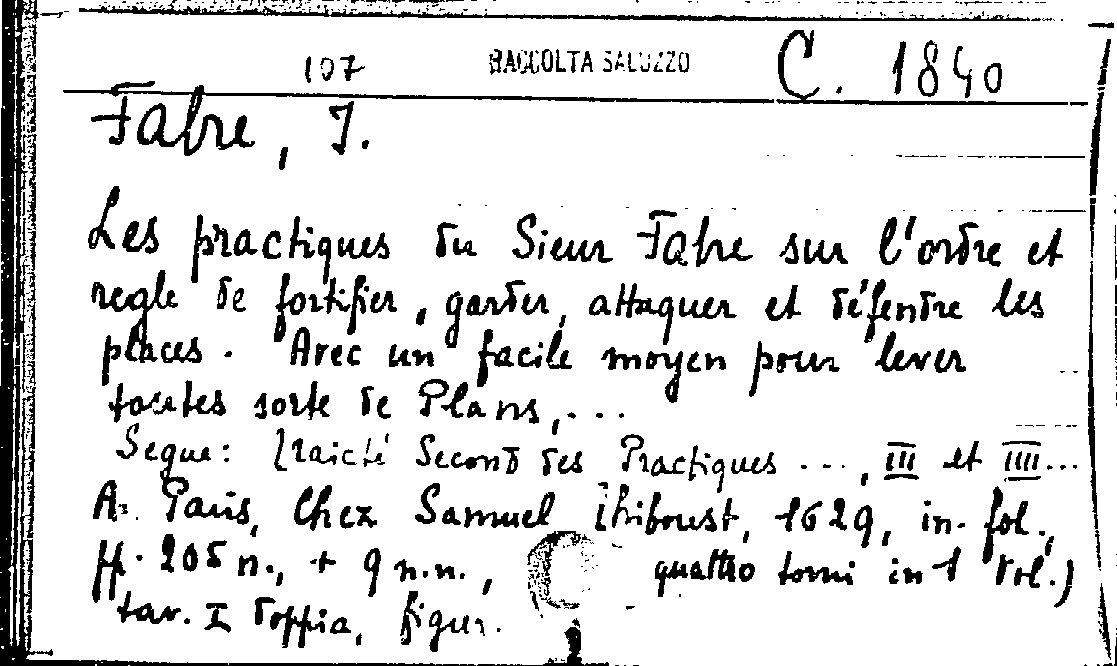 107 RACCOLTA SALUZZO C. 1840
Fabre, J.
Les practiques du Sieur Fabre sur l'ordre et
regle de fortifier, garder, attaquer et défendre les
places. Avec un facile moyen pour lever
toutes sorte de Plans,...
Segue: Traicté Second des Practiques ..., III et IIII...
A Paris, Chez Samuel Thiboust, 1629, in-fol.,
ff. 205 n., + 9 n.n., quattro tomi in 1 vol.)
tav. I doppia, figur.